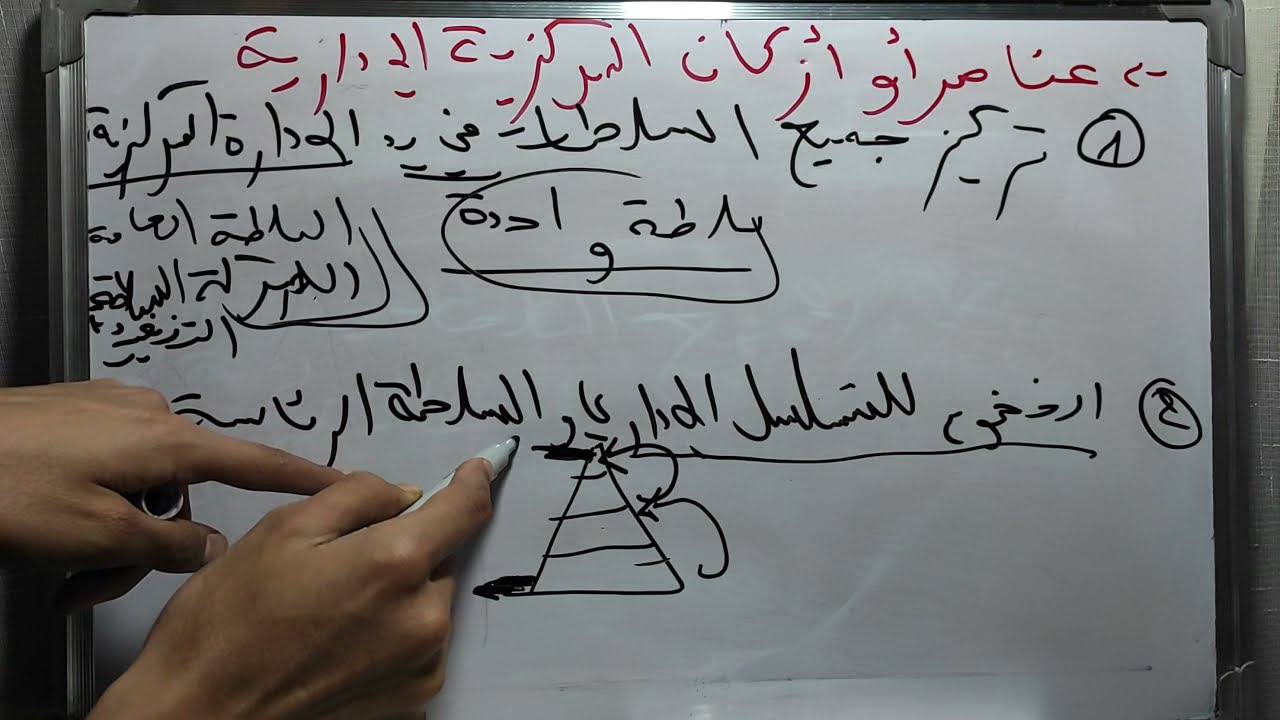 2- عناصر أو أركان المركزية الإدارية
① تركيز جميع السلطات في يد الإدارة المركزية
سلطة واحدة
السلطة العامة
المركزية
② للتسلسل الإداري و السلطة الرئاسية